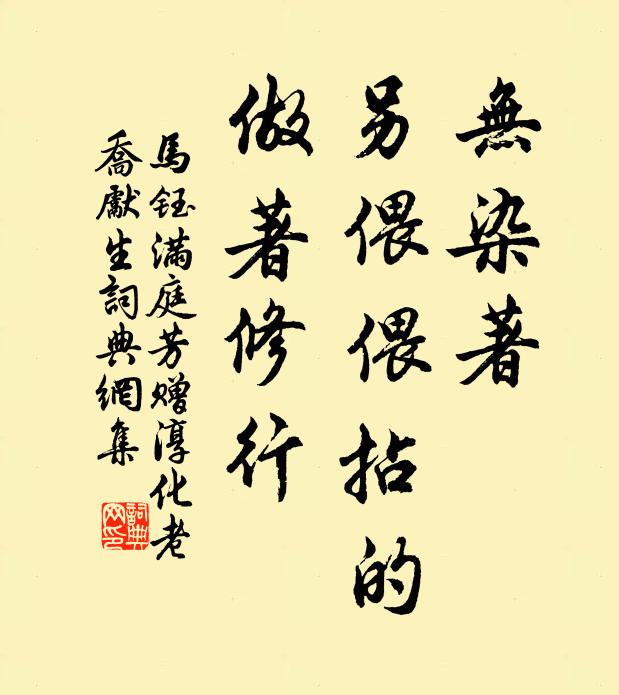 無染著
另偎偎拈的
做著修行
馬鈺滿庭芳贈淳化老
喬獻生詞典網集
詞典
网印